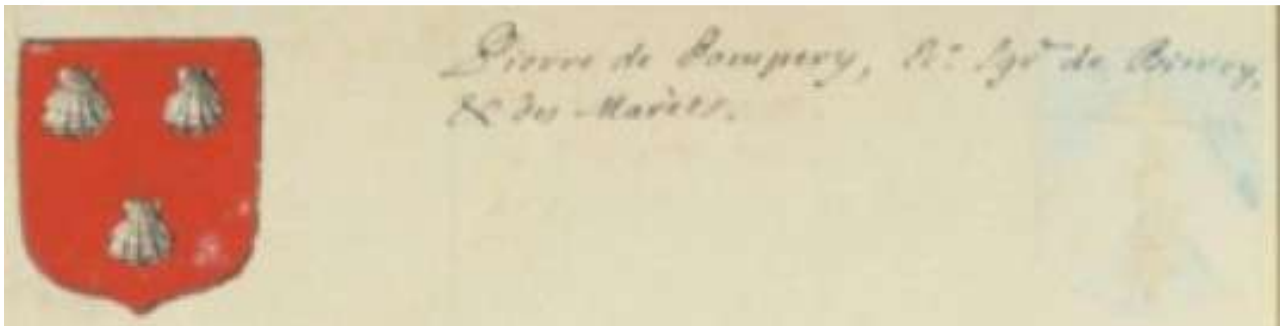 Pierre de Pompery, Er. Sgr. de Biercy,
& des Marets.